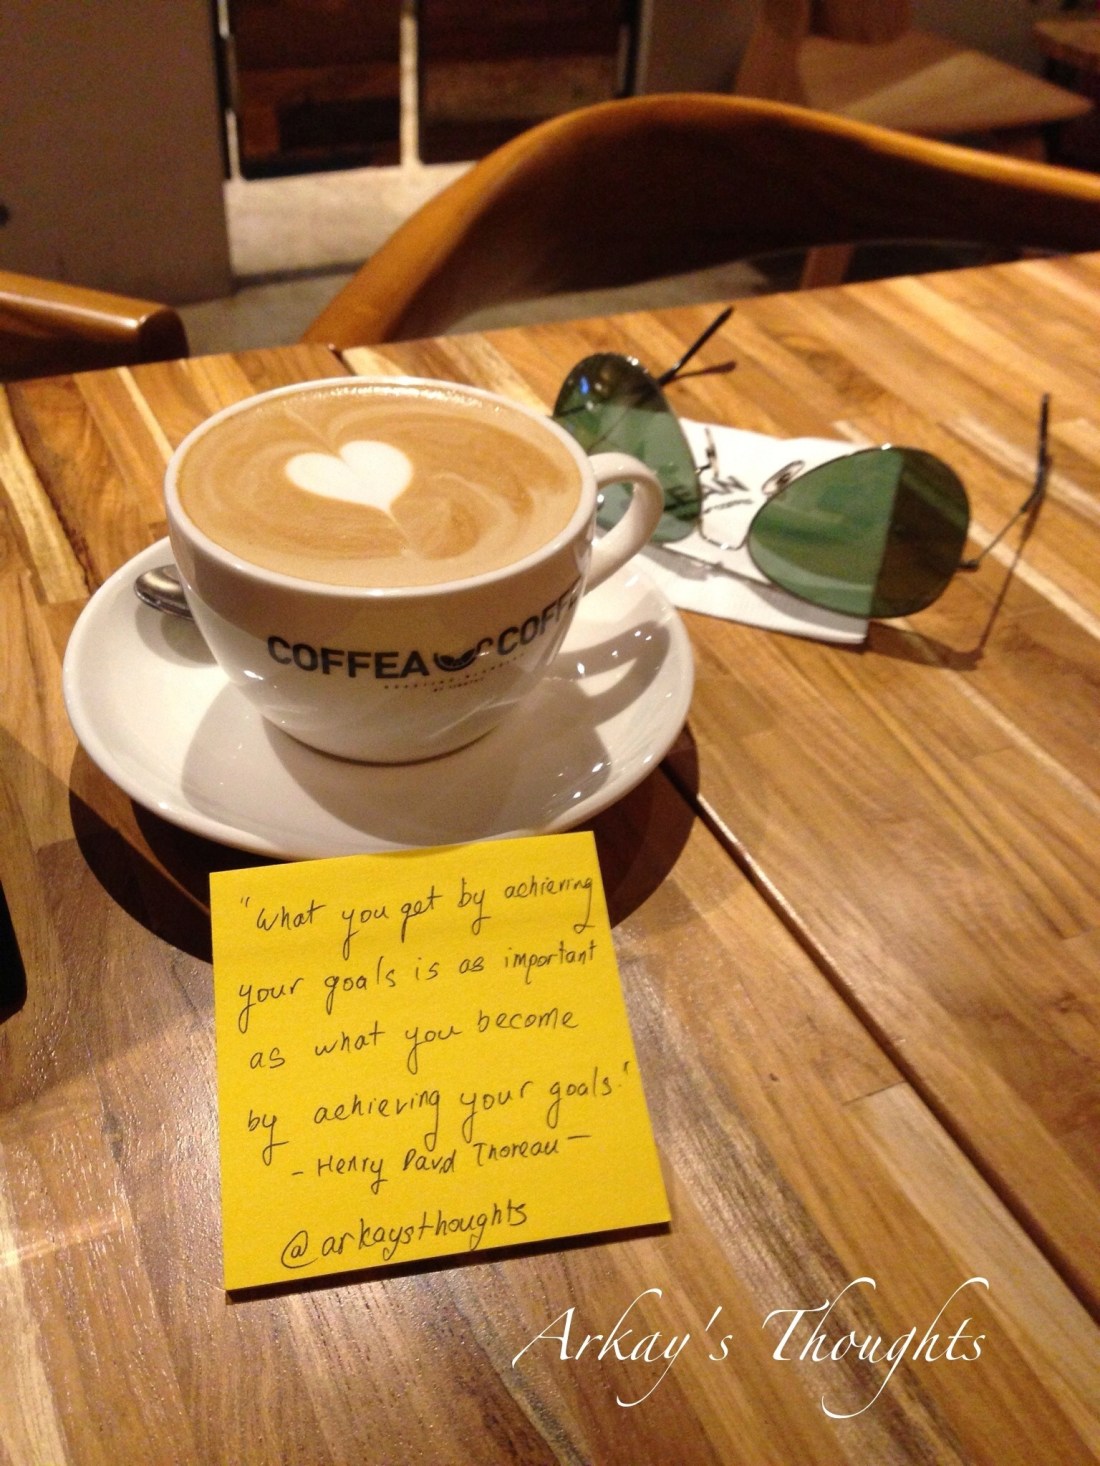 COFFEA COFFE
"What you get by achieving
your goals is as important
as what you become
by achieving your goals."
- Henry David Thoreau -
@arkaysthoughts
Arkay's Thoughts